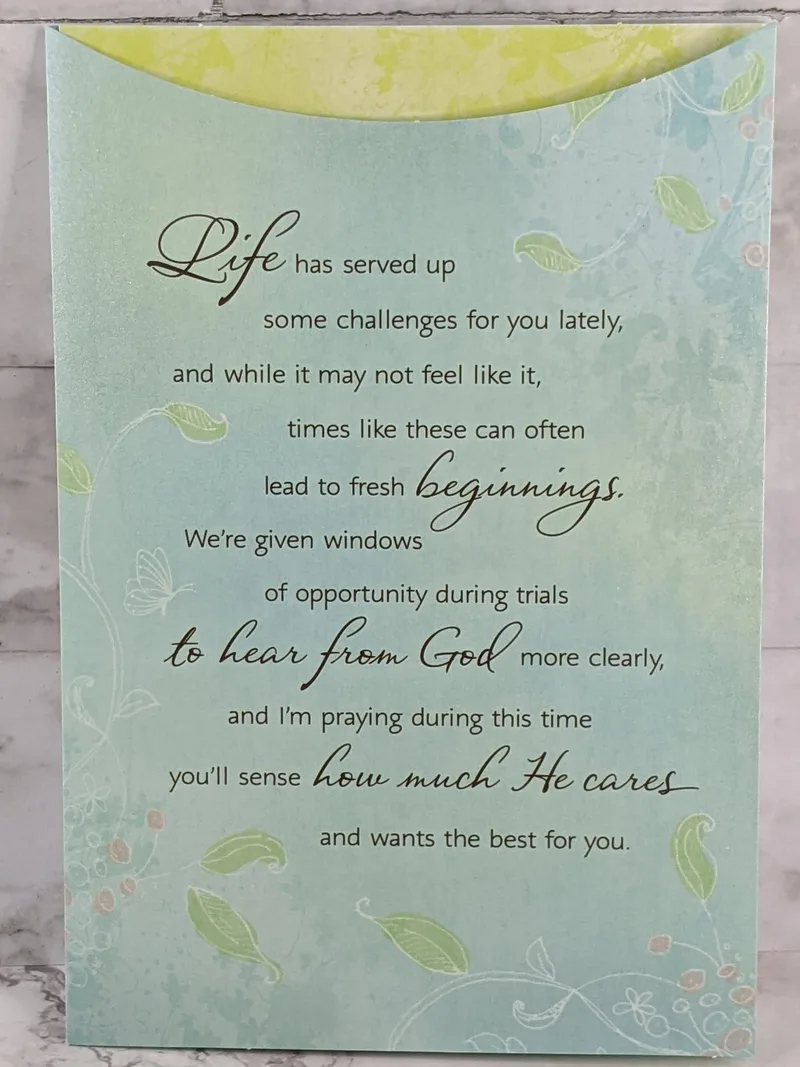 Life has served up
some challenges for you lately,
and while it may not feel like it,
times like these can often
lead to fresh beginnings.
We're given windows
of opportunity during trials
to hear from God more clearly,
and I'm praying during this time
you'll sense how much He cares
and wants the best for you.